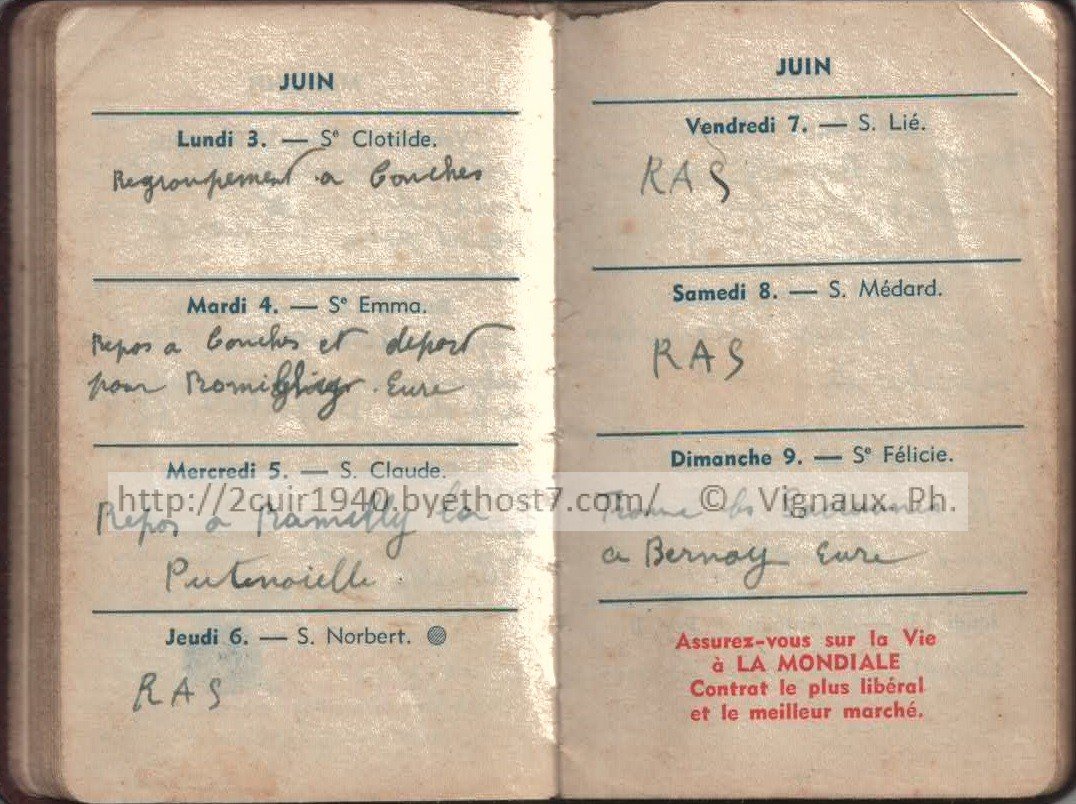 JUIN
Lundi 3. — Sᵉ Clotilde.
Regroupement a Conches
Mardi 4. — Sᵉ Emma.
Repos a Conches et depart
pour Romilly Eure
Mercredi 5. — S. Claude.
Repos a Romilly la
Putenaielle.
Jeudi 6. — S. Norbert.
RAS
JUIN
Vendredi 7. — S. Lié.
RAS
Samedi 8. — S. Médard.
RAS
Dimanche 9. — Sᵉ Félicie.
a Bernay Eure
Assurez-vous sur la Vie
à LA MONDIALE
Contrat le plus libéral
et le meilleur marché.
http://2cuir1940.byethost7.com/. © Vignaux. Ph.